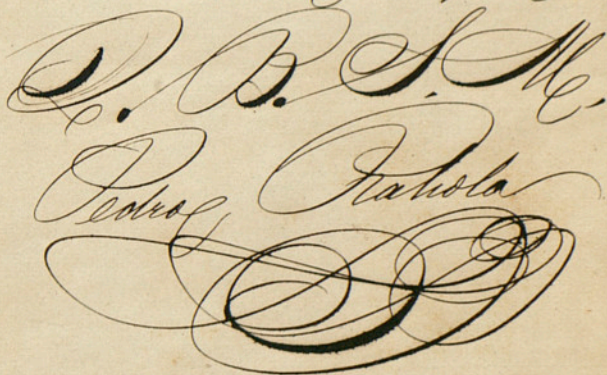 Q. B. S. M.
Pedro Rahola